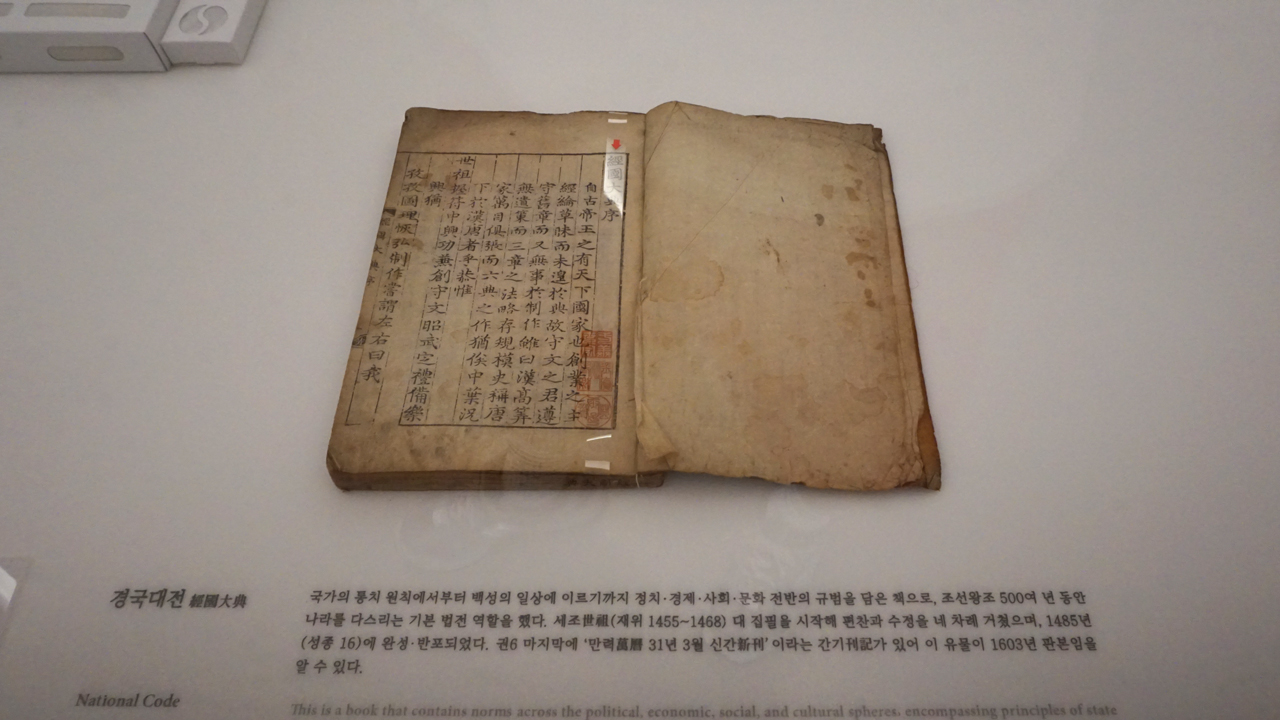 經國大典序
自古帝王之有天下國家也創業之主
經綸草昧而未遑於典故守文之君遵
守舊章而又無事於制作雖曰漢高筭
無遺策而三章之法略存規模史稱唐
家萬目俱張而六典之作猶俟中葉況
下於漢唐者乎恭惟
世祖握符中興功兼創守文昭武定禮備樂
興猶
孜孜圖理恢弘制作嘗謂左右曰我
경국대전 經國大典
국가의 통치 원칙에서부터 백성의 일상에 이르기까지 정치·경제·사회·문화 전반의 규범을 담은 책으로, 조선왕조 500여 년 동안
나라를 다스리는 기본 법전 역할을 했다. 세조世祖(재위 1455~1468) 대 집필을 시작해 편찬과 수정을 네 차례 거쳤으며, 1485년
(성종 16)에 완성·반포되었다. 권6 마지막에 '만력萬曆 31년 3월 신간新刊'이라는 간기刊記가 있어 이 유물이 1603년 판본임을
알 수 있다.
National Code
This is a book that contains norms across the political, economic, social, and cultural spheres, encompassing principles of state